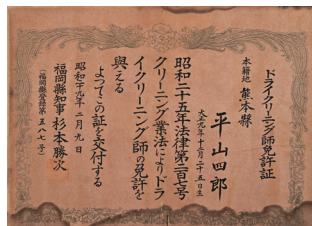 ドライクリーニング師免許証
本籍地 熊本縣
平山四郎
大正九年十二月二十五日生
昭和二十五年法律第二百七号
クリーニング業法によりドラ
イクリーニング師の免許を
與える
よつてこの証を交付する
昭和二十九年二月九日
福岡縣知事 杉本勝次
(福岡縣登録第五八七号)